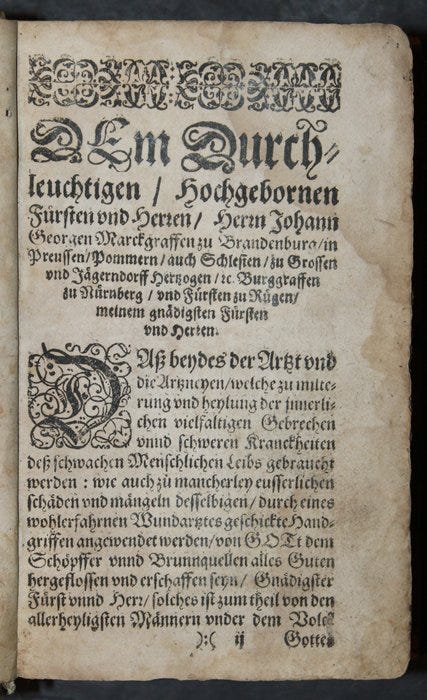 DEm Durch-
leuchtigen / Hochgebornen
Fürsten vnd Herren / Herrn Johann
Georgen Marckgraffen zu Brandenburg / in
Preussen / Pommern / auch Schlesien / zu Grossen
vnd Jägerndorff Hertzogen / ꝛc. Burggraffen
zu Nürnberg / vnd Fürsten zu Rügen /
meinem gnädigsten Fürsten
vnd Herren.
DAß beydes der Artzt vnd
die Artzneyen / welche zu milte-
rung vnd heylung der jnnerli-
chen vielfaltigen Gebrechen
vnnd schweren Kranckheiten
deß schwachen Menschlichen Leibs gebraucht
werden : wie auch zu mancherley eusserlichen
schäden vnd mängeln desselbigen / durch eines
wohlerfahrnen Wundartztes geschickte Hand-
griffen angewendet werden / von GOTt dem
Schöpffer vnnd Brunnquellen alles Guten
hergeflossen vnd erschaffen seyn / Gnädigster
Fürst vnnd Herr / solches ist zum theil von den
allerheyligsten Männern vnder dem Volck
):( ij Gottes